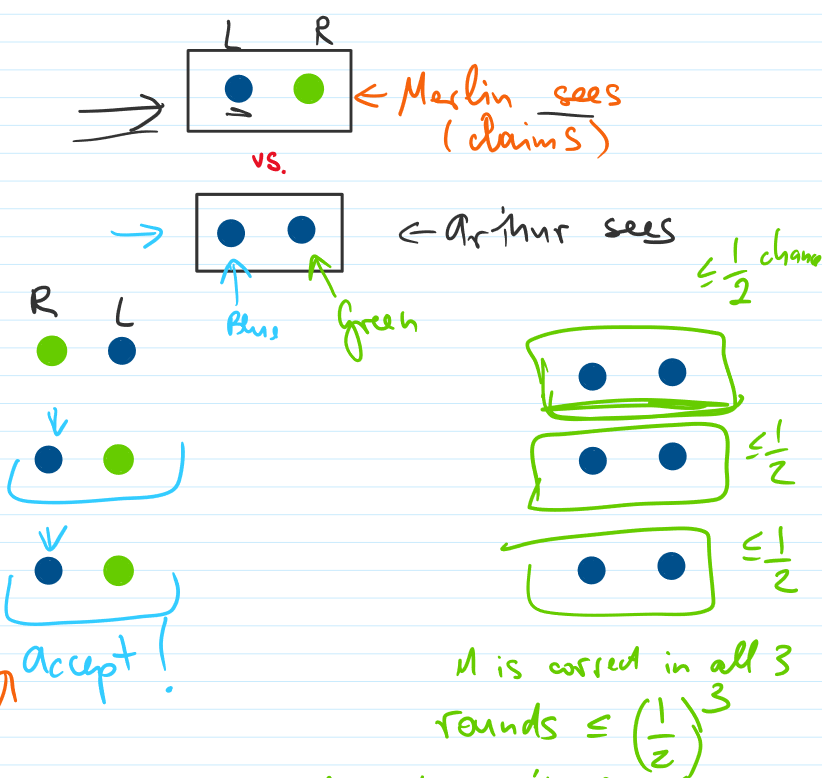 L R
← Merlin sees
(claims)
vs.
← Arthur sees
≤ 1/2 chance
Blue Green
R L
≤ 1/2
≤ 1/2
accept!
M is correct in all 3
rounds ≤ (1/2)^3